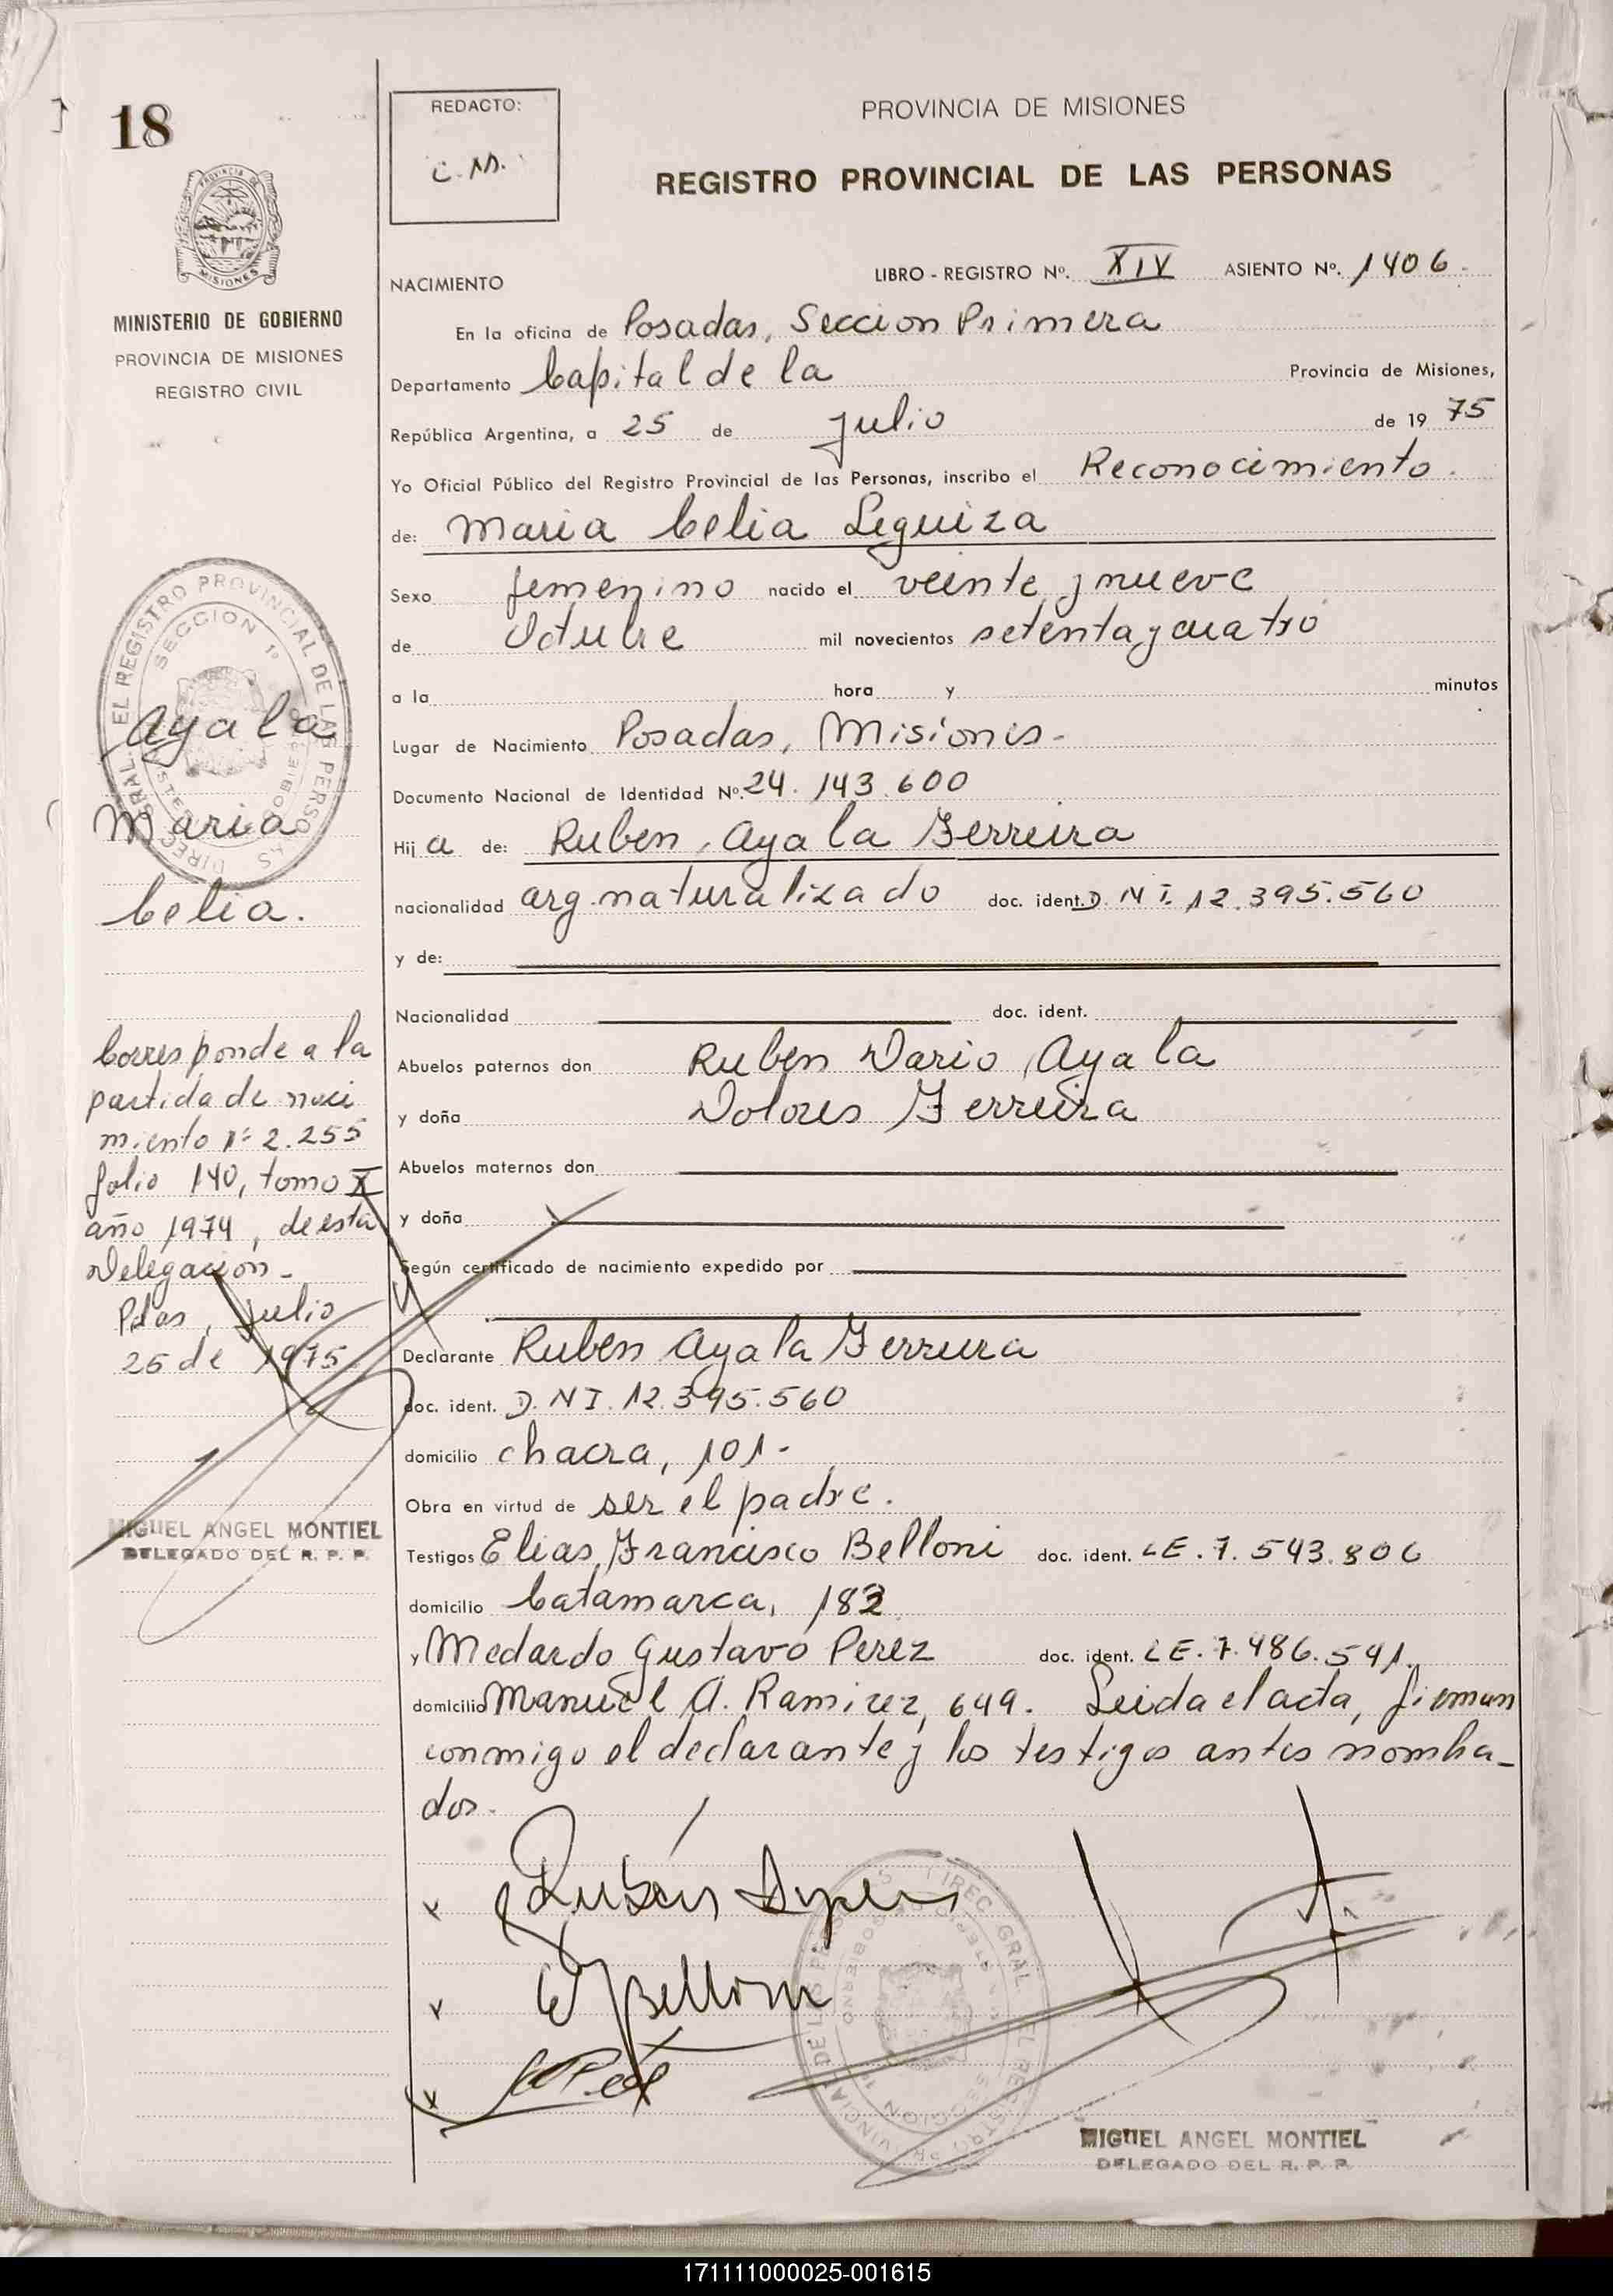 18
REDACTO:
C. M.
PROVINCIA DE MISIONES
REGISTRO PROVINCIAL DE LAS PERSONAS
MISIONES
MINISTERIO DE GOBIERNO
PROVINCIA DE MISIONES
REGISTRO CIVIL
NACIMIENTO
LIBRO - REGISTRO Nº. XIV ASIENTO Nº. 1406.
En la oficina de Posadas, Seccion Primera
Departamento Capital de la Provincia de Misiones,
República Argentina, a 25 de Julio de 19 75
Yo Oficial Público del Registro Provincial de las Personas, inscribo el Reconocimiento.
de: Maria Celia Leguiza
Sexo femenino nacido el veinte y nueve
de Octubre mil novecientos setenta y cuatro
a la hora y minutos
Lugar de Nacimiento Posadas, Misiones.
Documento Nacional de Identidad Nº. 24.143.600
Hij a de: Ruben Ayala Ferreira
nacionalidad arg. naturalizado doc. ident. D.N I. 12.395.560
y de:
Nacionalidad doc. ident.
Abuelos paternos don Ruben Dario Ayala
y doña Dolores Ferreira
Abuelos maternos don
y doña
Según certificado de nacimiento expedido por
Declarante Ruben Ayala Ferreira
doc. ident. D.N I. 12.395.560
domicilio chacra, 101.
Obra en virtud de ser el padre.
Testigos Elias Francisco Belloni doc. ident. LE. 7.543.806
domicilio Catamarca, 182
y Medardo Gustavo Perez doc. ident. LE. 7.486.541.
domicilio Manuel A. Ramirez, 649. Leida el acta, firman
conmigo el declarante y los testigos antes nombra-
dos.
Ayala
Maria
Celia.
Corresponde a la
partida de naci
miento Nº 2.255
folio 140, tomo X
año 1974, de esta
Delegación-
Pdas, Julio
25 de 1975
MIGUEL ANGEL MONTIEL
DELEGADO DEL R. P. P.
MIGUEL ANGEL MONTIEL
DELEGADO DEL R. P. P.
171111000025-001615